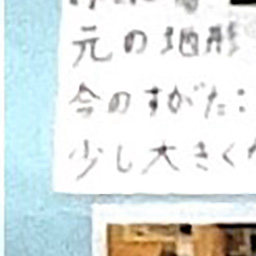 元の地形
今のすがた:
少し大きく